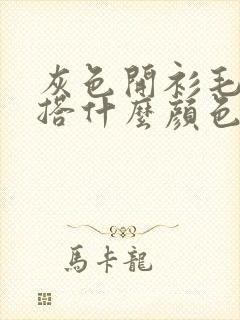 灰色開衫毛
搭什麼顔色
馬卡龍